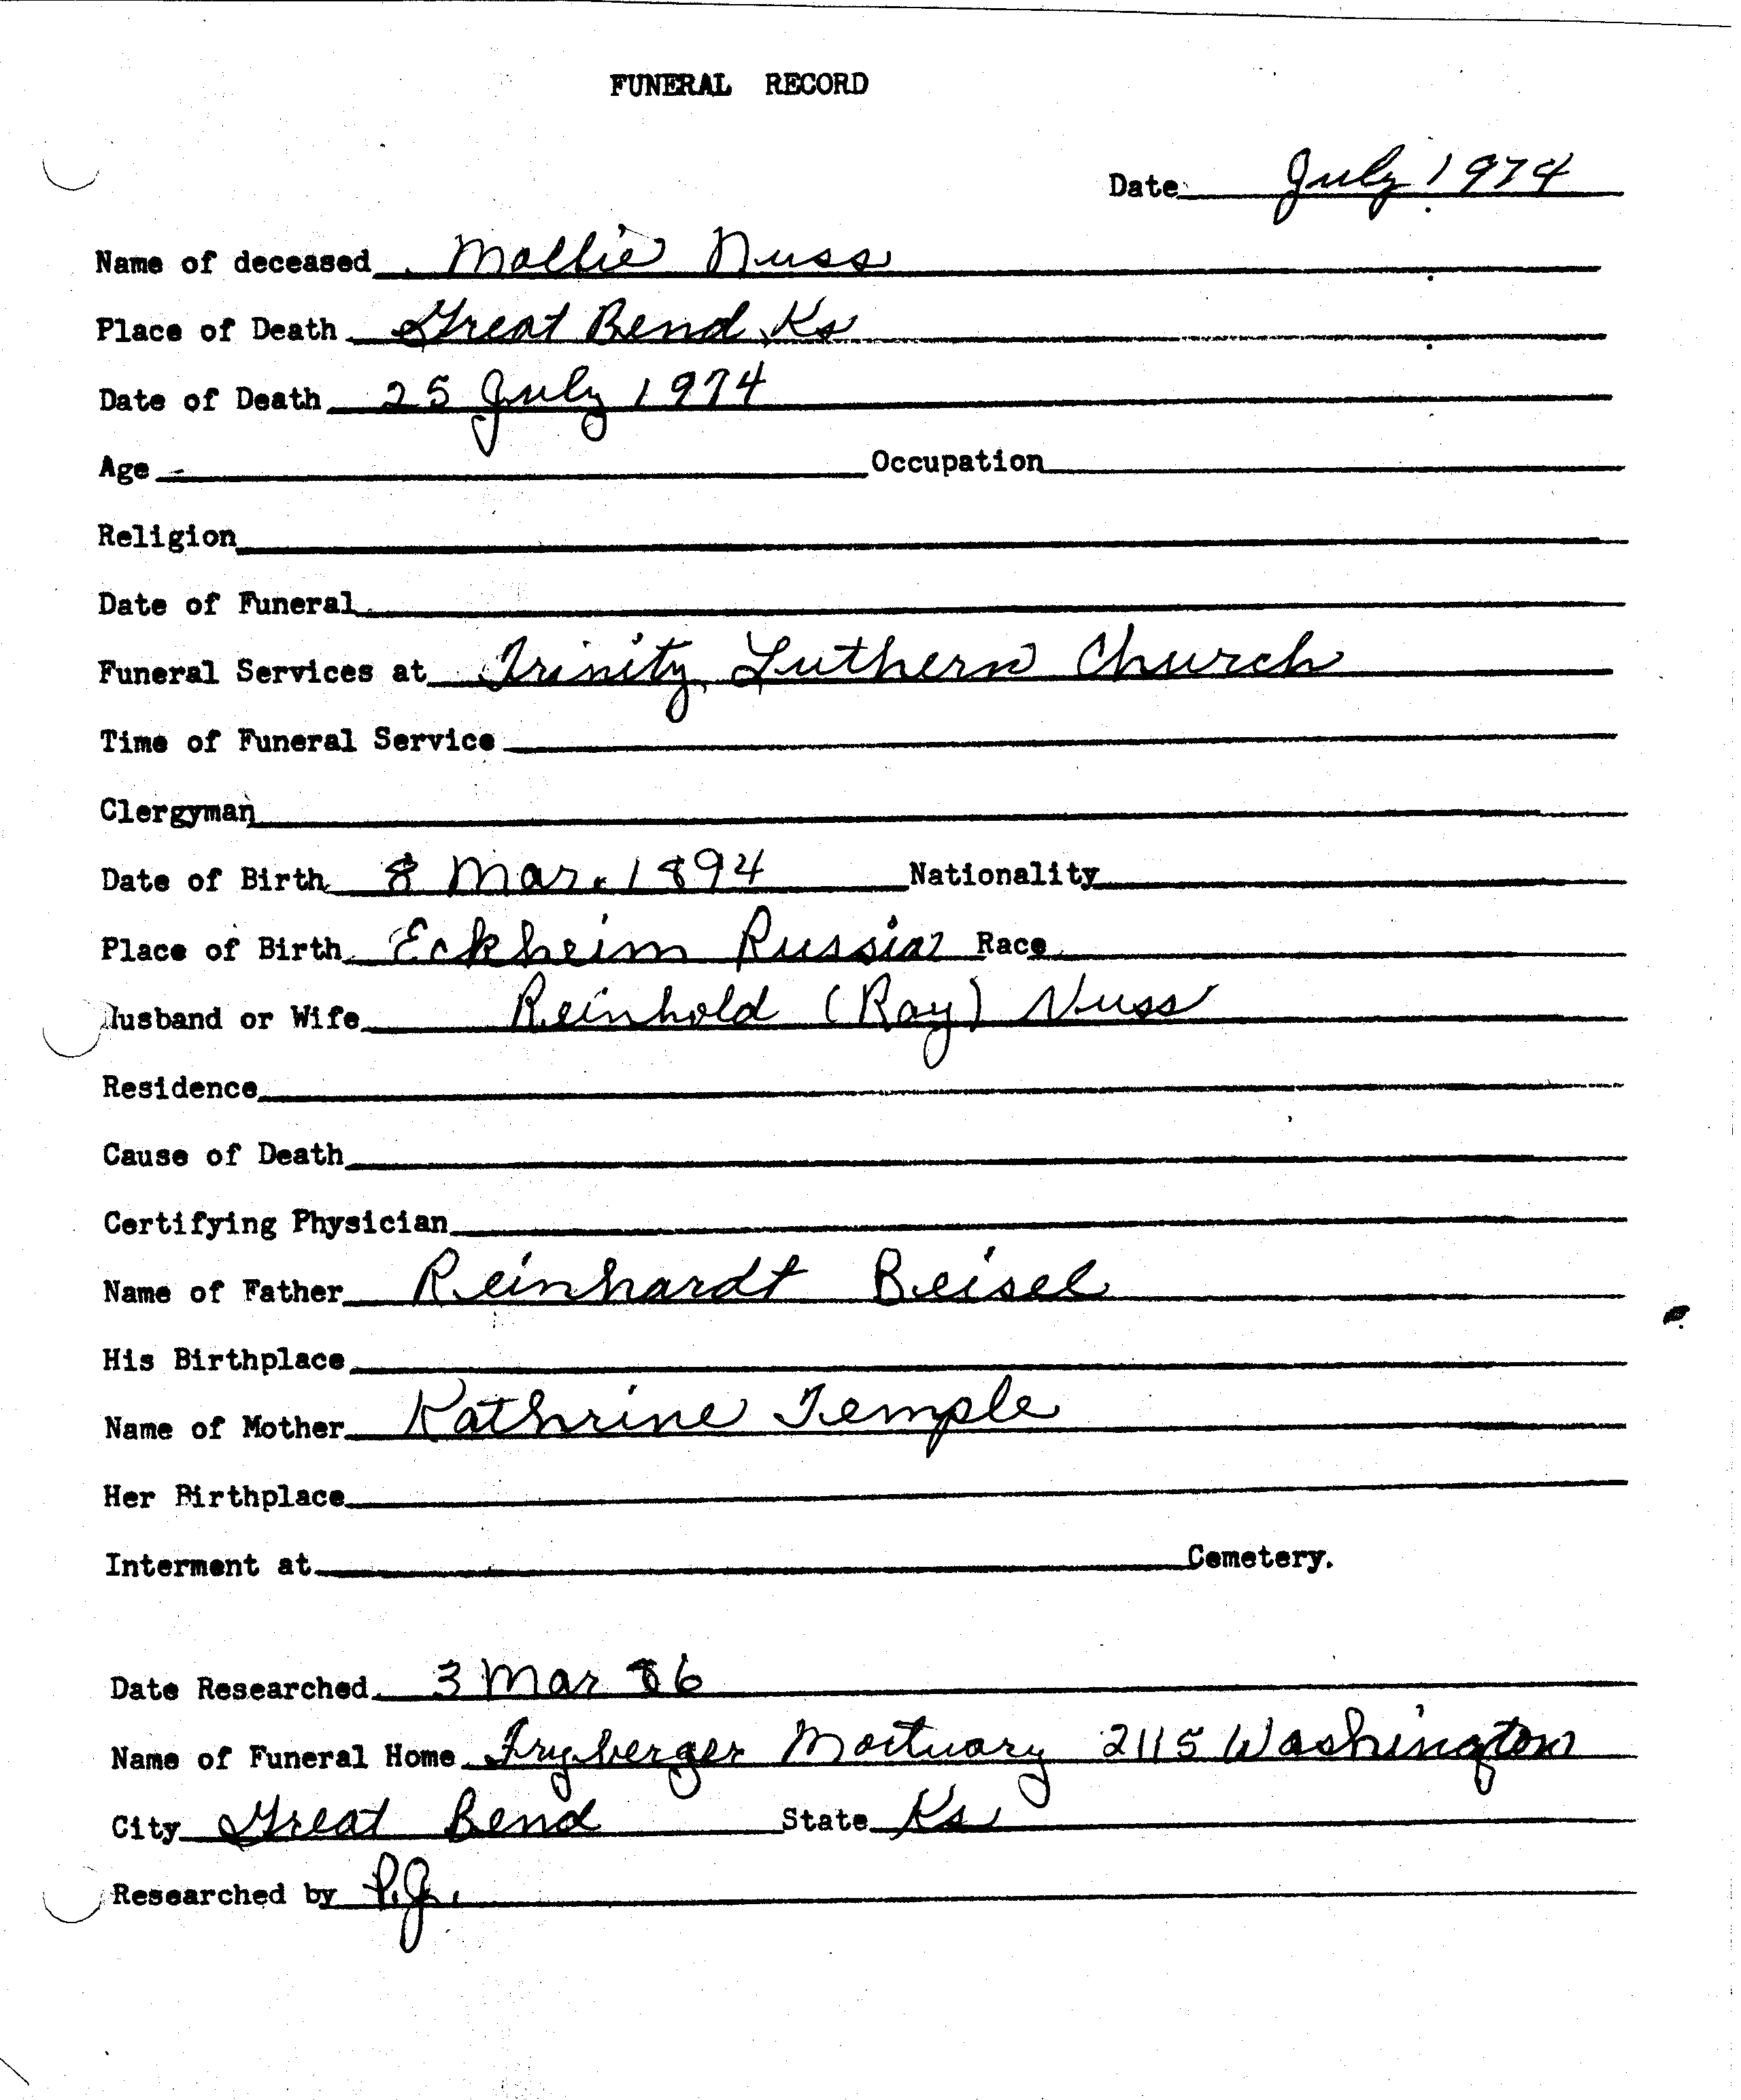 FUNERAL RECORD
Date July 1974
Name of deceased Mollie Nuss
Place of Death Great Bend, Ks
Date of Death 25 July 1974
Age Occupation
Religion
Date of Funeral
Funeral Services at Trinity Luthern Church
Time of Funeral Service
Clergyman
Date of Birth 8 Mar. 1894 Nationality
Place of Birth Eckheim Russia Race
Husband or Wife Reinhold (Ray) Nuss
Residence
Cause of Death
Certifying Physician
Name of Father Reinhardt Beisel
His Birthplace
Name of Mother Kathrine Temple
Her Birthplace
Interment at Cemetery.
Date Researched 3 Mar 86
Name of Funeral Home Fryberger Mortuary 2115 Washington
City Great Bend State Ks
Researched by P.J.